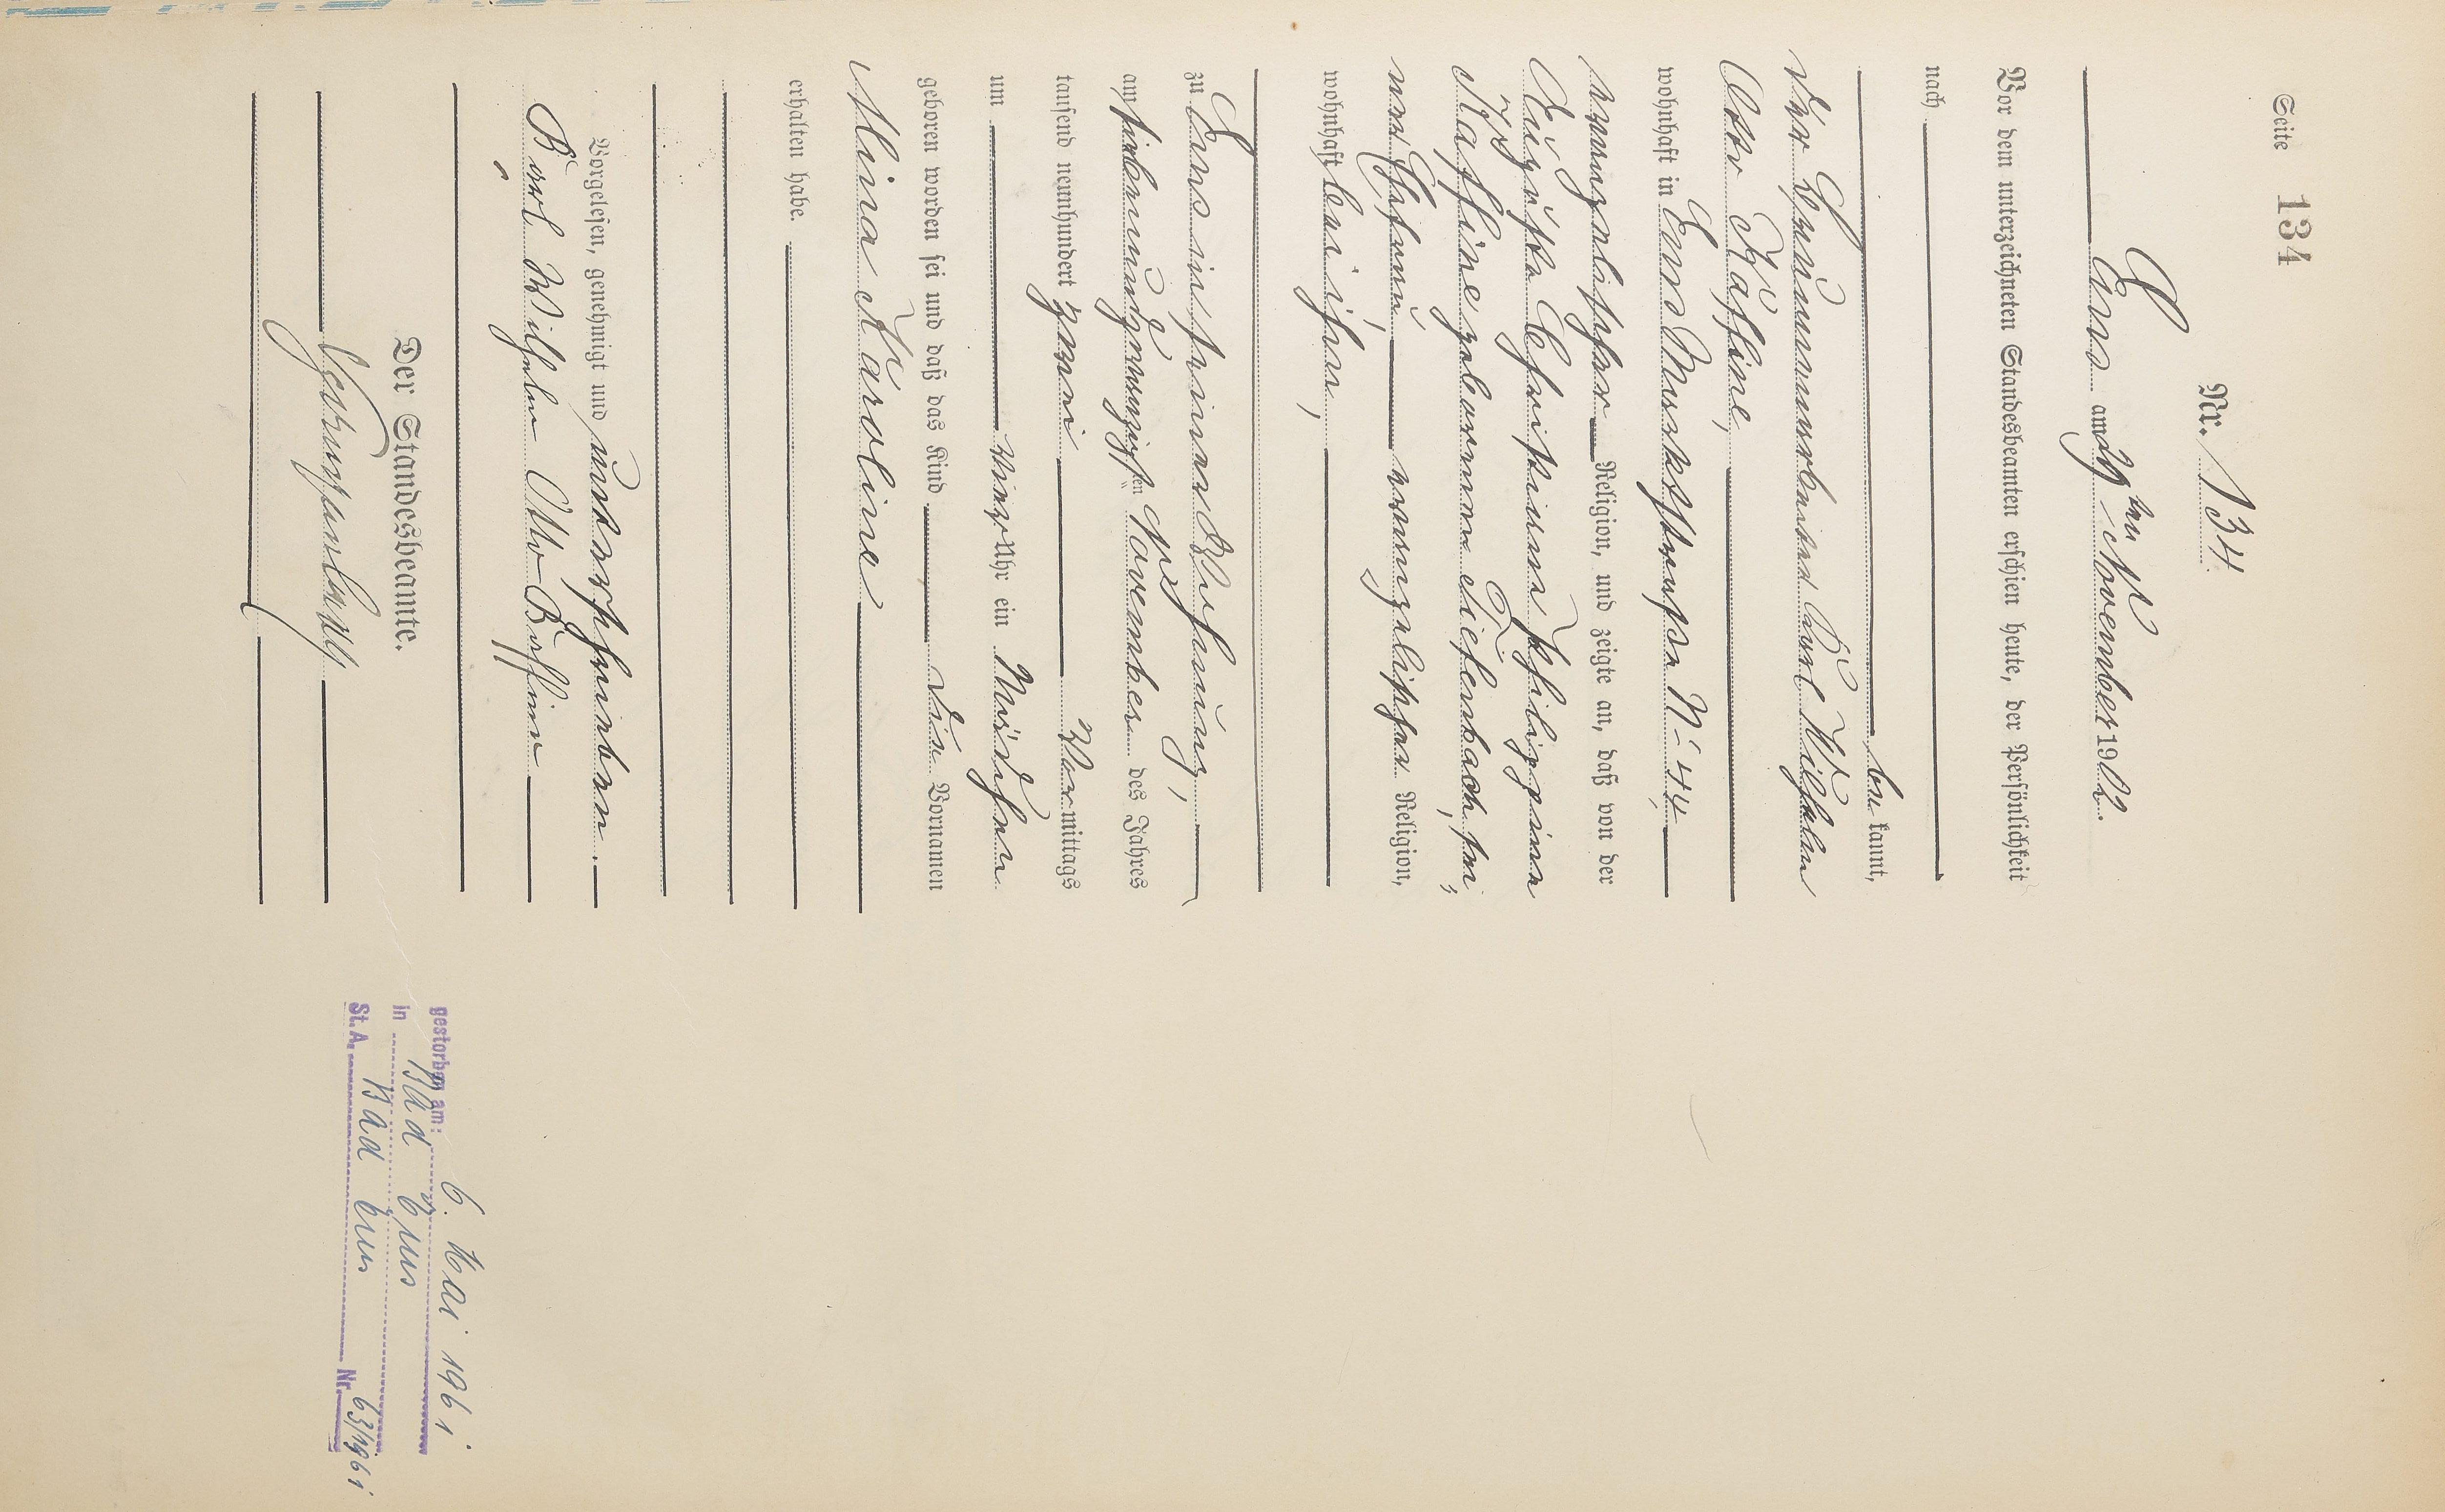 Seite 134
Nr. 134
Ems am 29ten November 1902.
Vor dem unterzeichneten Standesbeamten erschien heute, der Persönlichkeit
nach
be kannt,
der Karl Wilhelm
Otto Käffine,
wohnhaft in Ems Marktstraße No 44
evangelischer Religion, und zeigte an, daß von der
Auguste Christiane Philippine
Käffine geborenen Diefenbach, sei-
ner Ehefrau evangelischer Religion,
wohnhaft bei ihm,
zu Ems in seiner Wohnung,
am siebenundzwanzigsten November des Jahres
tausend neunhundert zwei Vormittags
um vier Uhr ein Mädchen
geboren worden sei und daß das Kind die Vornamen
Mina Karoline
erhalten habe.
Vorgelesen, genehmigt und unterschrieben.
Karl Wilhelm Otto Käffine
Der Standesbeamte.
gestorben am: 6. Mai 1961
in Bad Ems
St. A. Bad Ems Nr. 63/1961